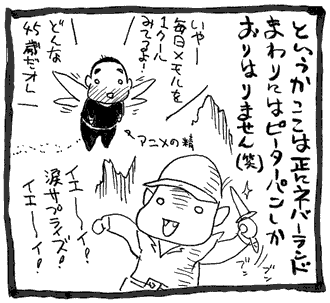 というかここは正にネバーランド
まわりにはピーターパンしか
おりはりません(笑)
いやー
毎日メモルを
1クール
みてるよ!
どんな
45歳だオレー
アニメの精
ブン
ブン
イエ〜〜イ!
涙サプライズ!
イエ〜〜イ!